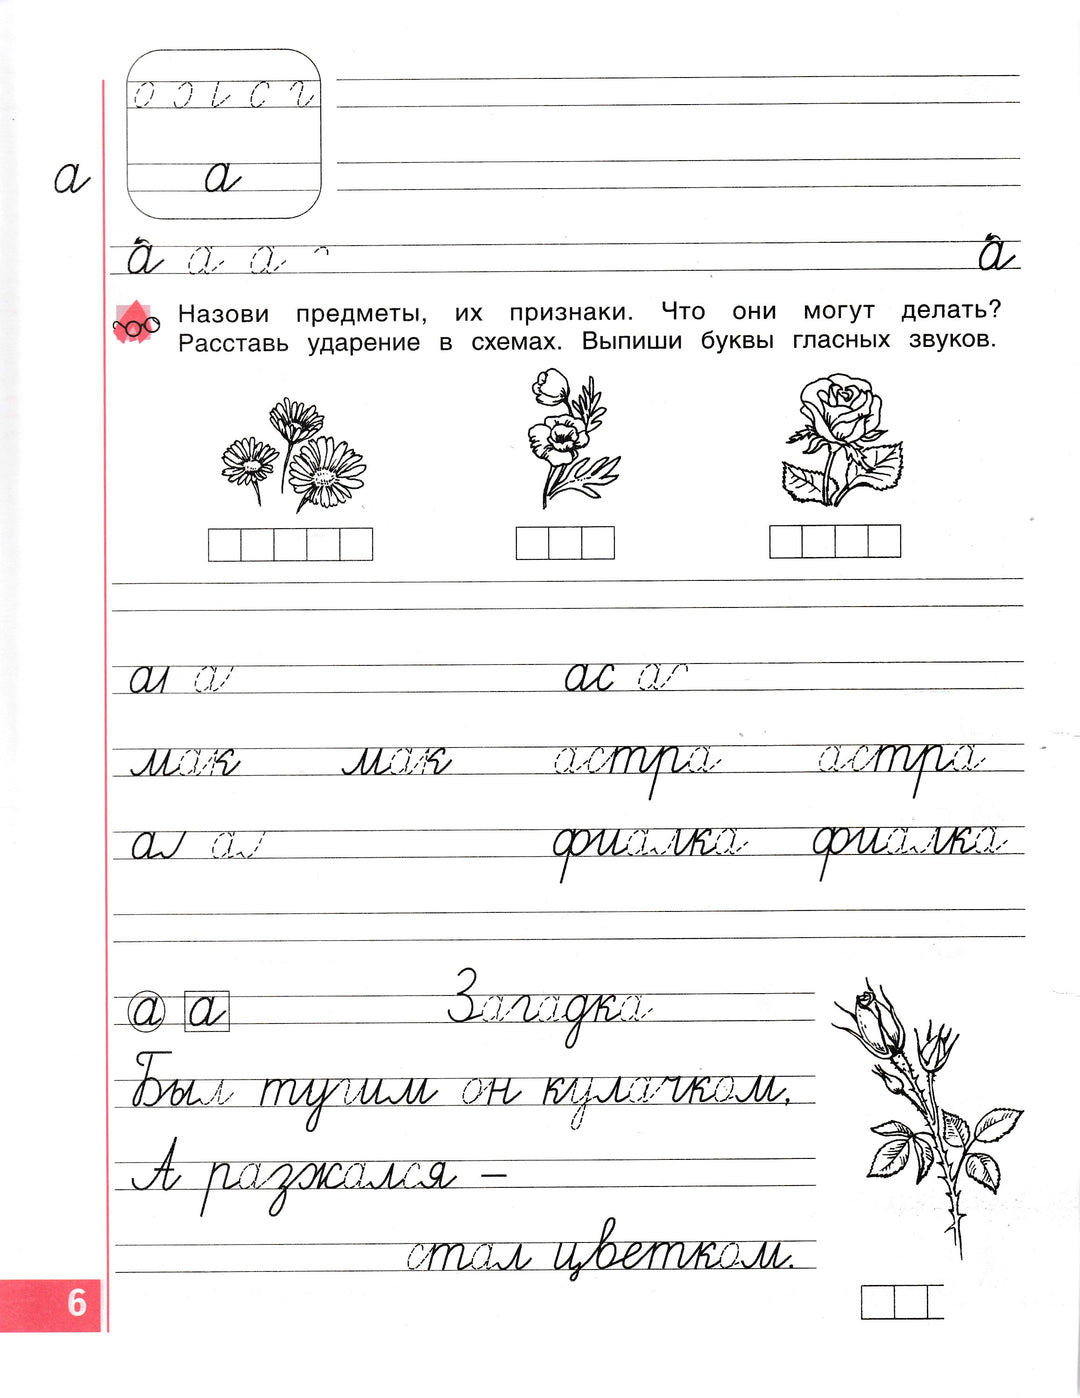 а а
а а а а
Назови предметы, их признаки. Что они могут делать?
Расставь ударение в схемах. Выпиши буквы гласных звуков.
мак мак астра астра
фиалка фиалка
а а Загадка
Был тугим он кулачком,
А разжался –
стал цветком.
6